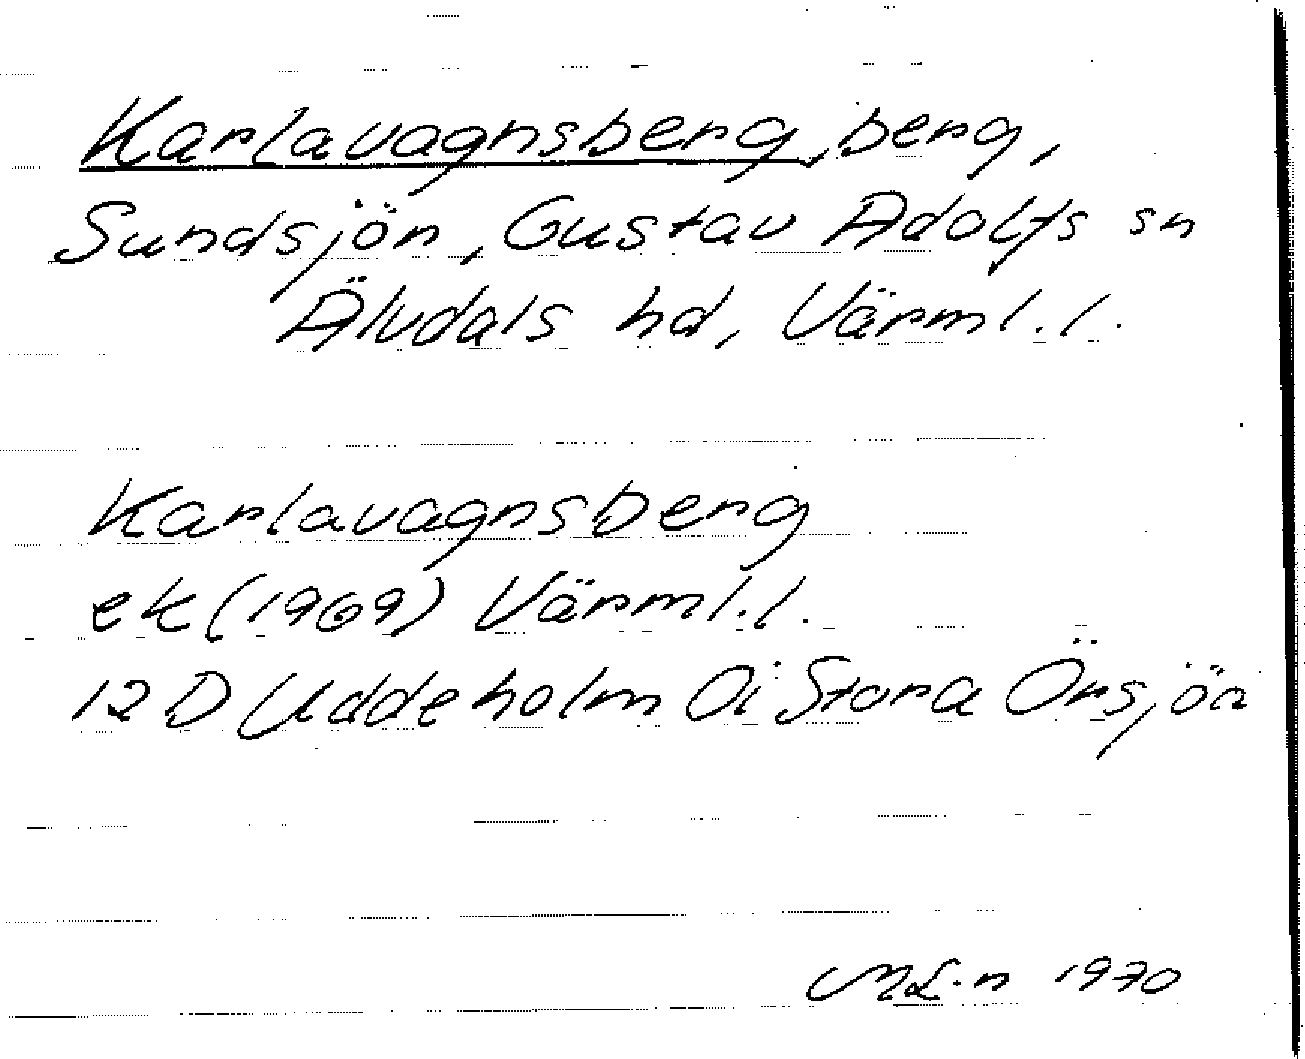 Karlavagnsberg, berg,
Sundsjön, Gustav Adolfs sn
Älvdals hd, Värml. l.
Karlavagnsberg
ek (1969) Värml. l.
12 D Uddeholm 0i Stora Örsjön
ML-n 1970